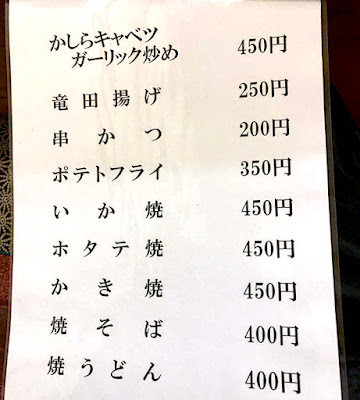 かしらキャベツ
ガーリック炒め 450円
竜田揚げ 250円
串かつ 200円
ポテトフライ 350円
いか焼 450円
ホタテ焼 450円
かき焼 450円
焼そば 400円
焼うどん 400円